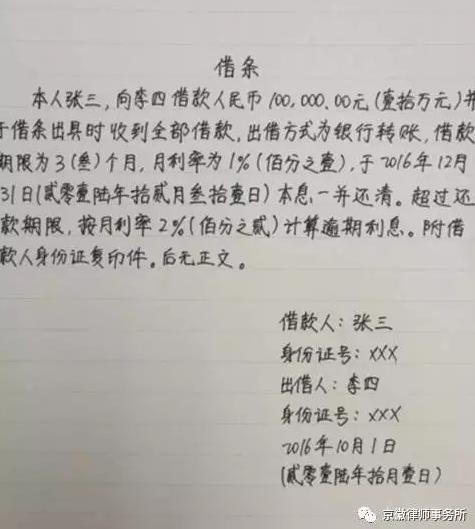 借条
本人张三,向李四借款人民币100,000.00元(壹拾万元)并
于借条出具时收到全部借款,出借方式为银行转账,借款
期限为3(叁)个月,月利率为1%(佰分之壹),于2016年12月
31日(贰零壹陆年拾贰月叁拾壹日)本息一并还清。超过还
款期限,按月利率2%(佰分之贰)计算逾期利息。附借
款人身份证复印件。后无正文。
借款人:张三
身份证号:XXX
出借人:李四
身份证号:XXX
2016年10月1日
(贰零壹陆年拾月壹日)
京徽律师事务所